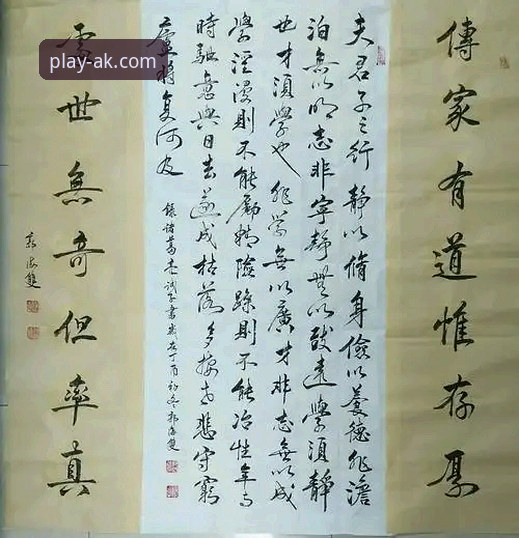 傳家有道惟存厚
夫君子之行靜以脩身儉以養德非澹
泊無以明志非寧靜無以致遠學須靜
也才須學也非學無以廣才非志無以成
學淫漫則不能勵精險躁則不能冶性年與
時馳意與日去遂成枯落多接世悲守窮
廬將复何及
錄諸葛亮誡子書歲在丁酉初冬海雙
處世無奇但率真
海雙
play-ak.com